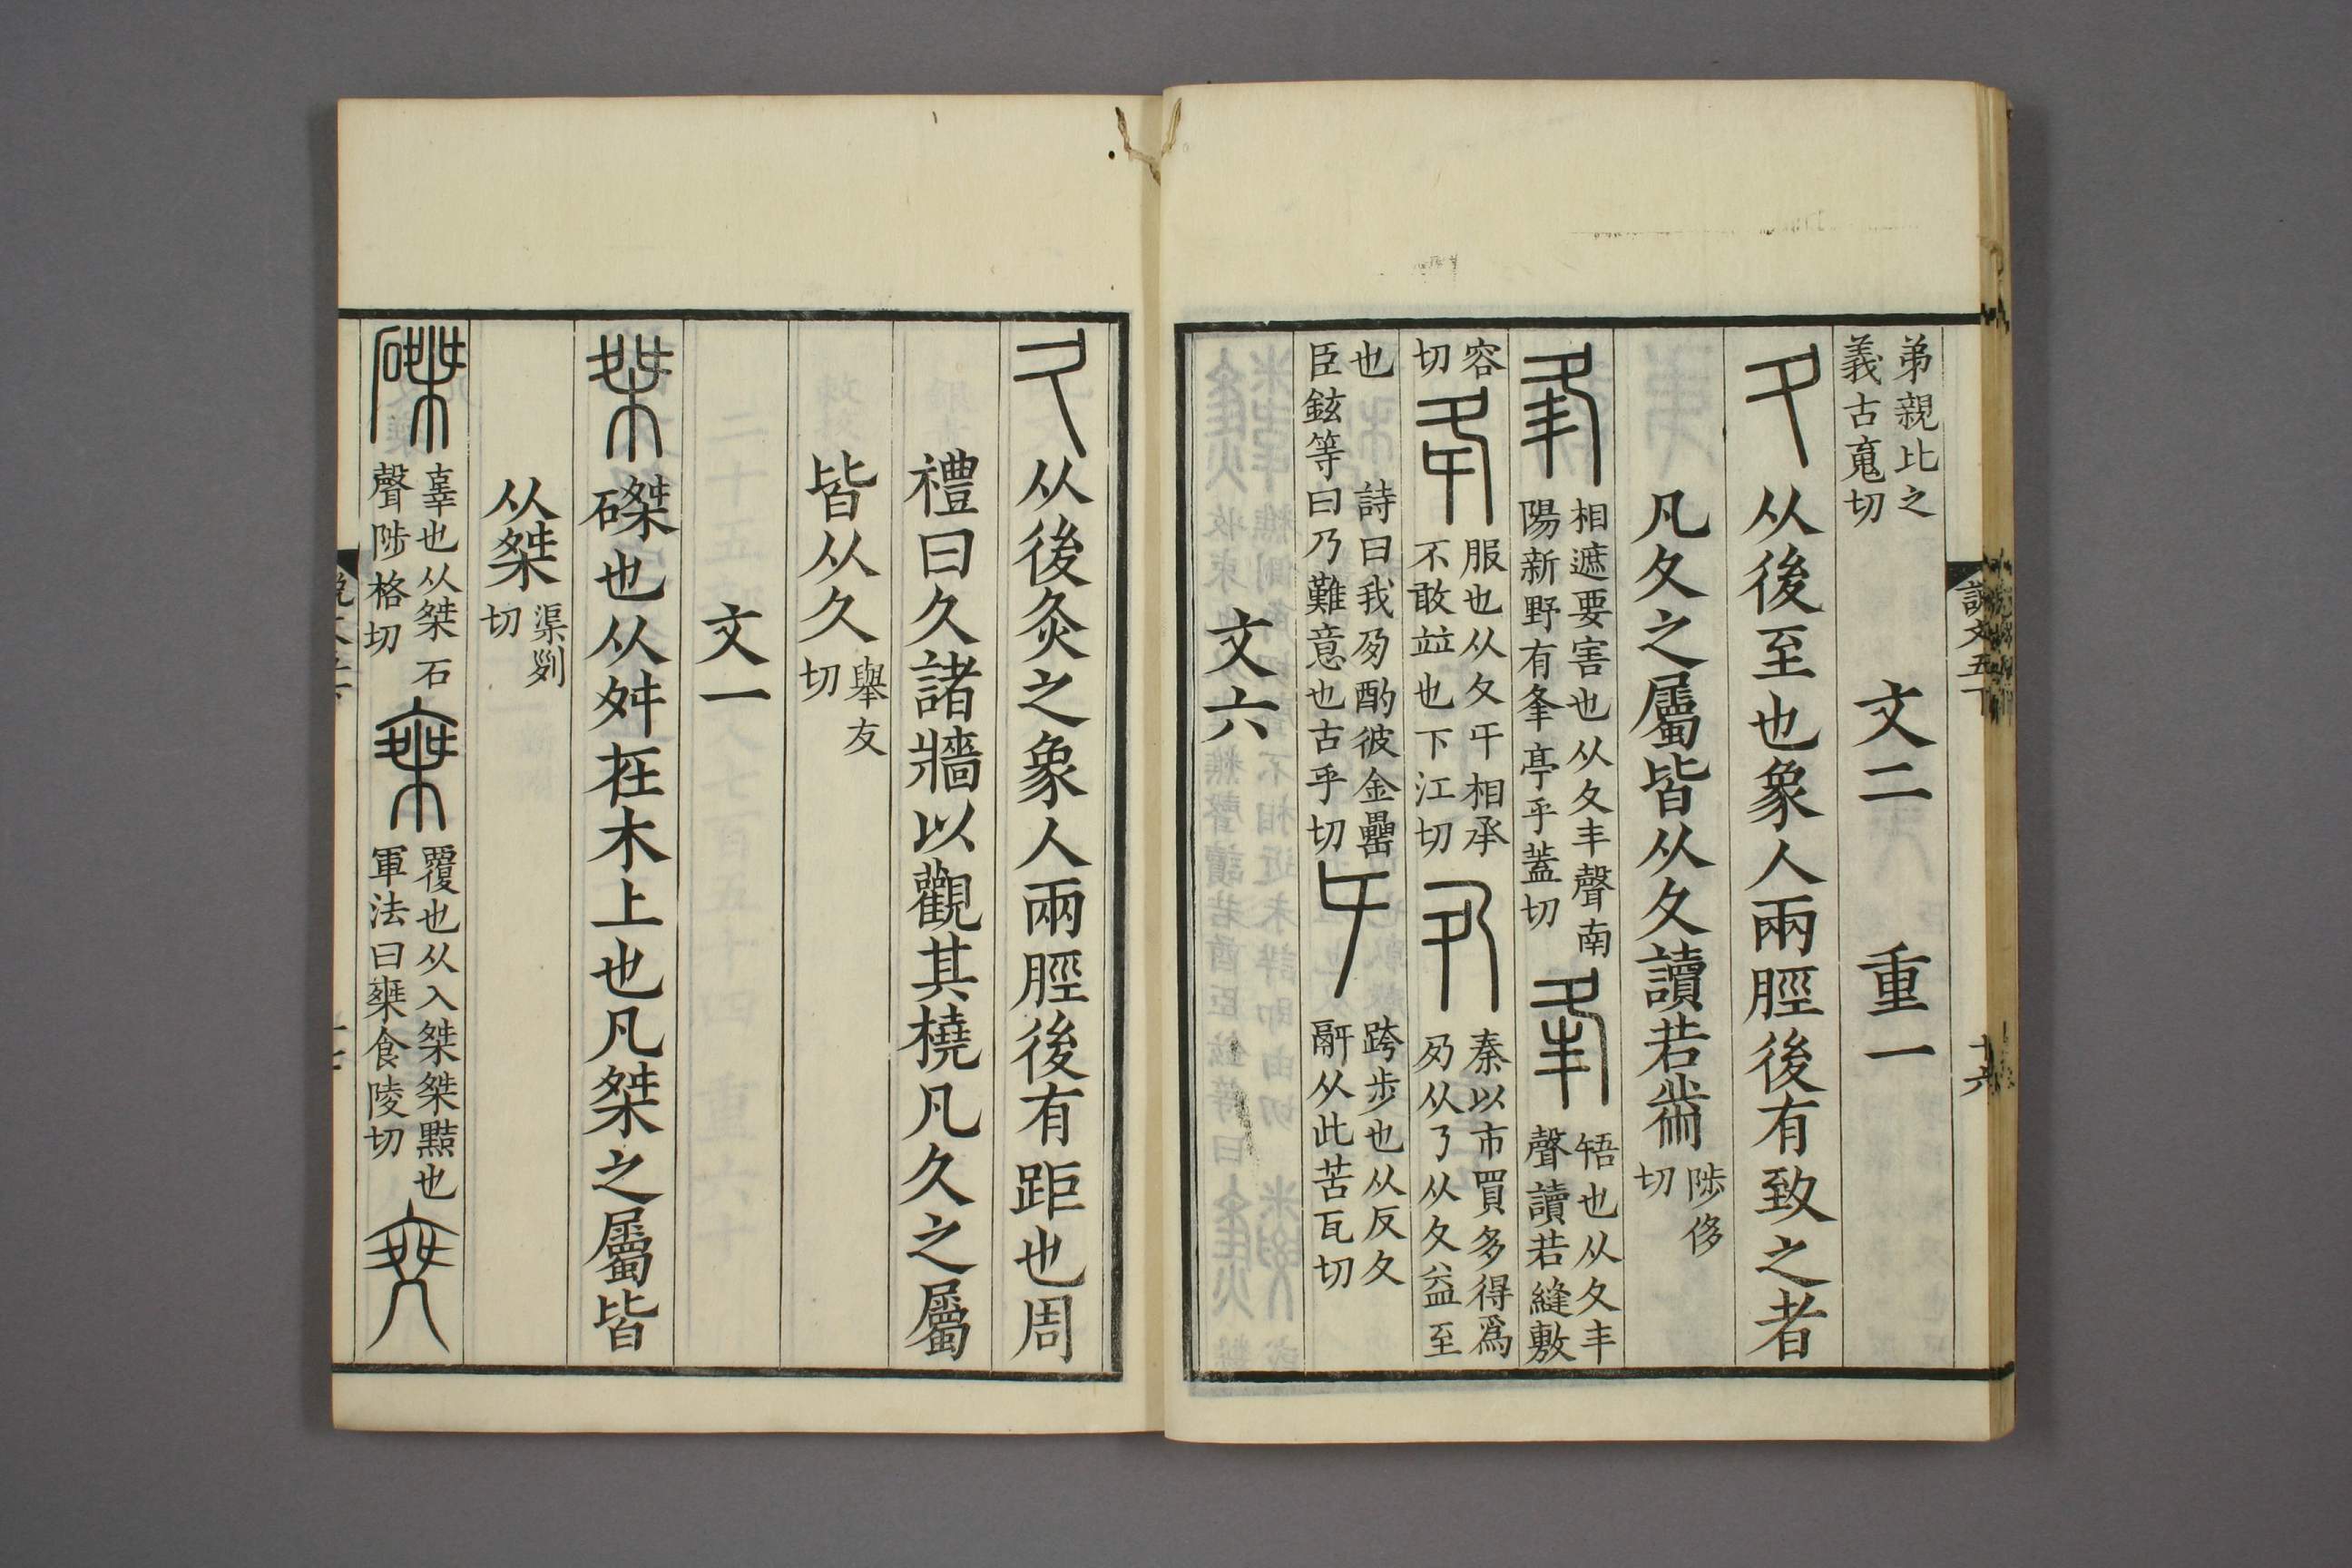 弟親比之
義古䰟切
文二　重一
夂 从後至也象人兩脛後有致之者
凡夂之屬皆从夂讀若黹 陟侈
切
夆 相遮要害也从夂丰聲南
陽新野有夆亭乎蓋切
夆 啎也从夂丰
聲讀若縫敷
容
切
夅 服也从夂㐄相承
不敢竝也下江切
夃 秦以市買多得爲
夃从了从夂益至
也 詩曰我夃酌彼金罍
臣鉉等曰乃難意也古乎切
㐄 跨步也从反夂
䣄从此苦瓦切
文六
說文五下
十六
久 从後灸之象人兩脛後有距也周
禮曰久諸牆以觀其橈凡久之屬
皆从久 舉友
切
文一
桀 磔也从舛在木上也凡桀之屬皆
从桀 渠列
切
磔 辜也从桀石
聲陟格切
椉 覆也从入桀桀黠也
軍法曰椉食陵切